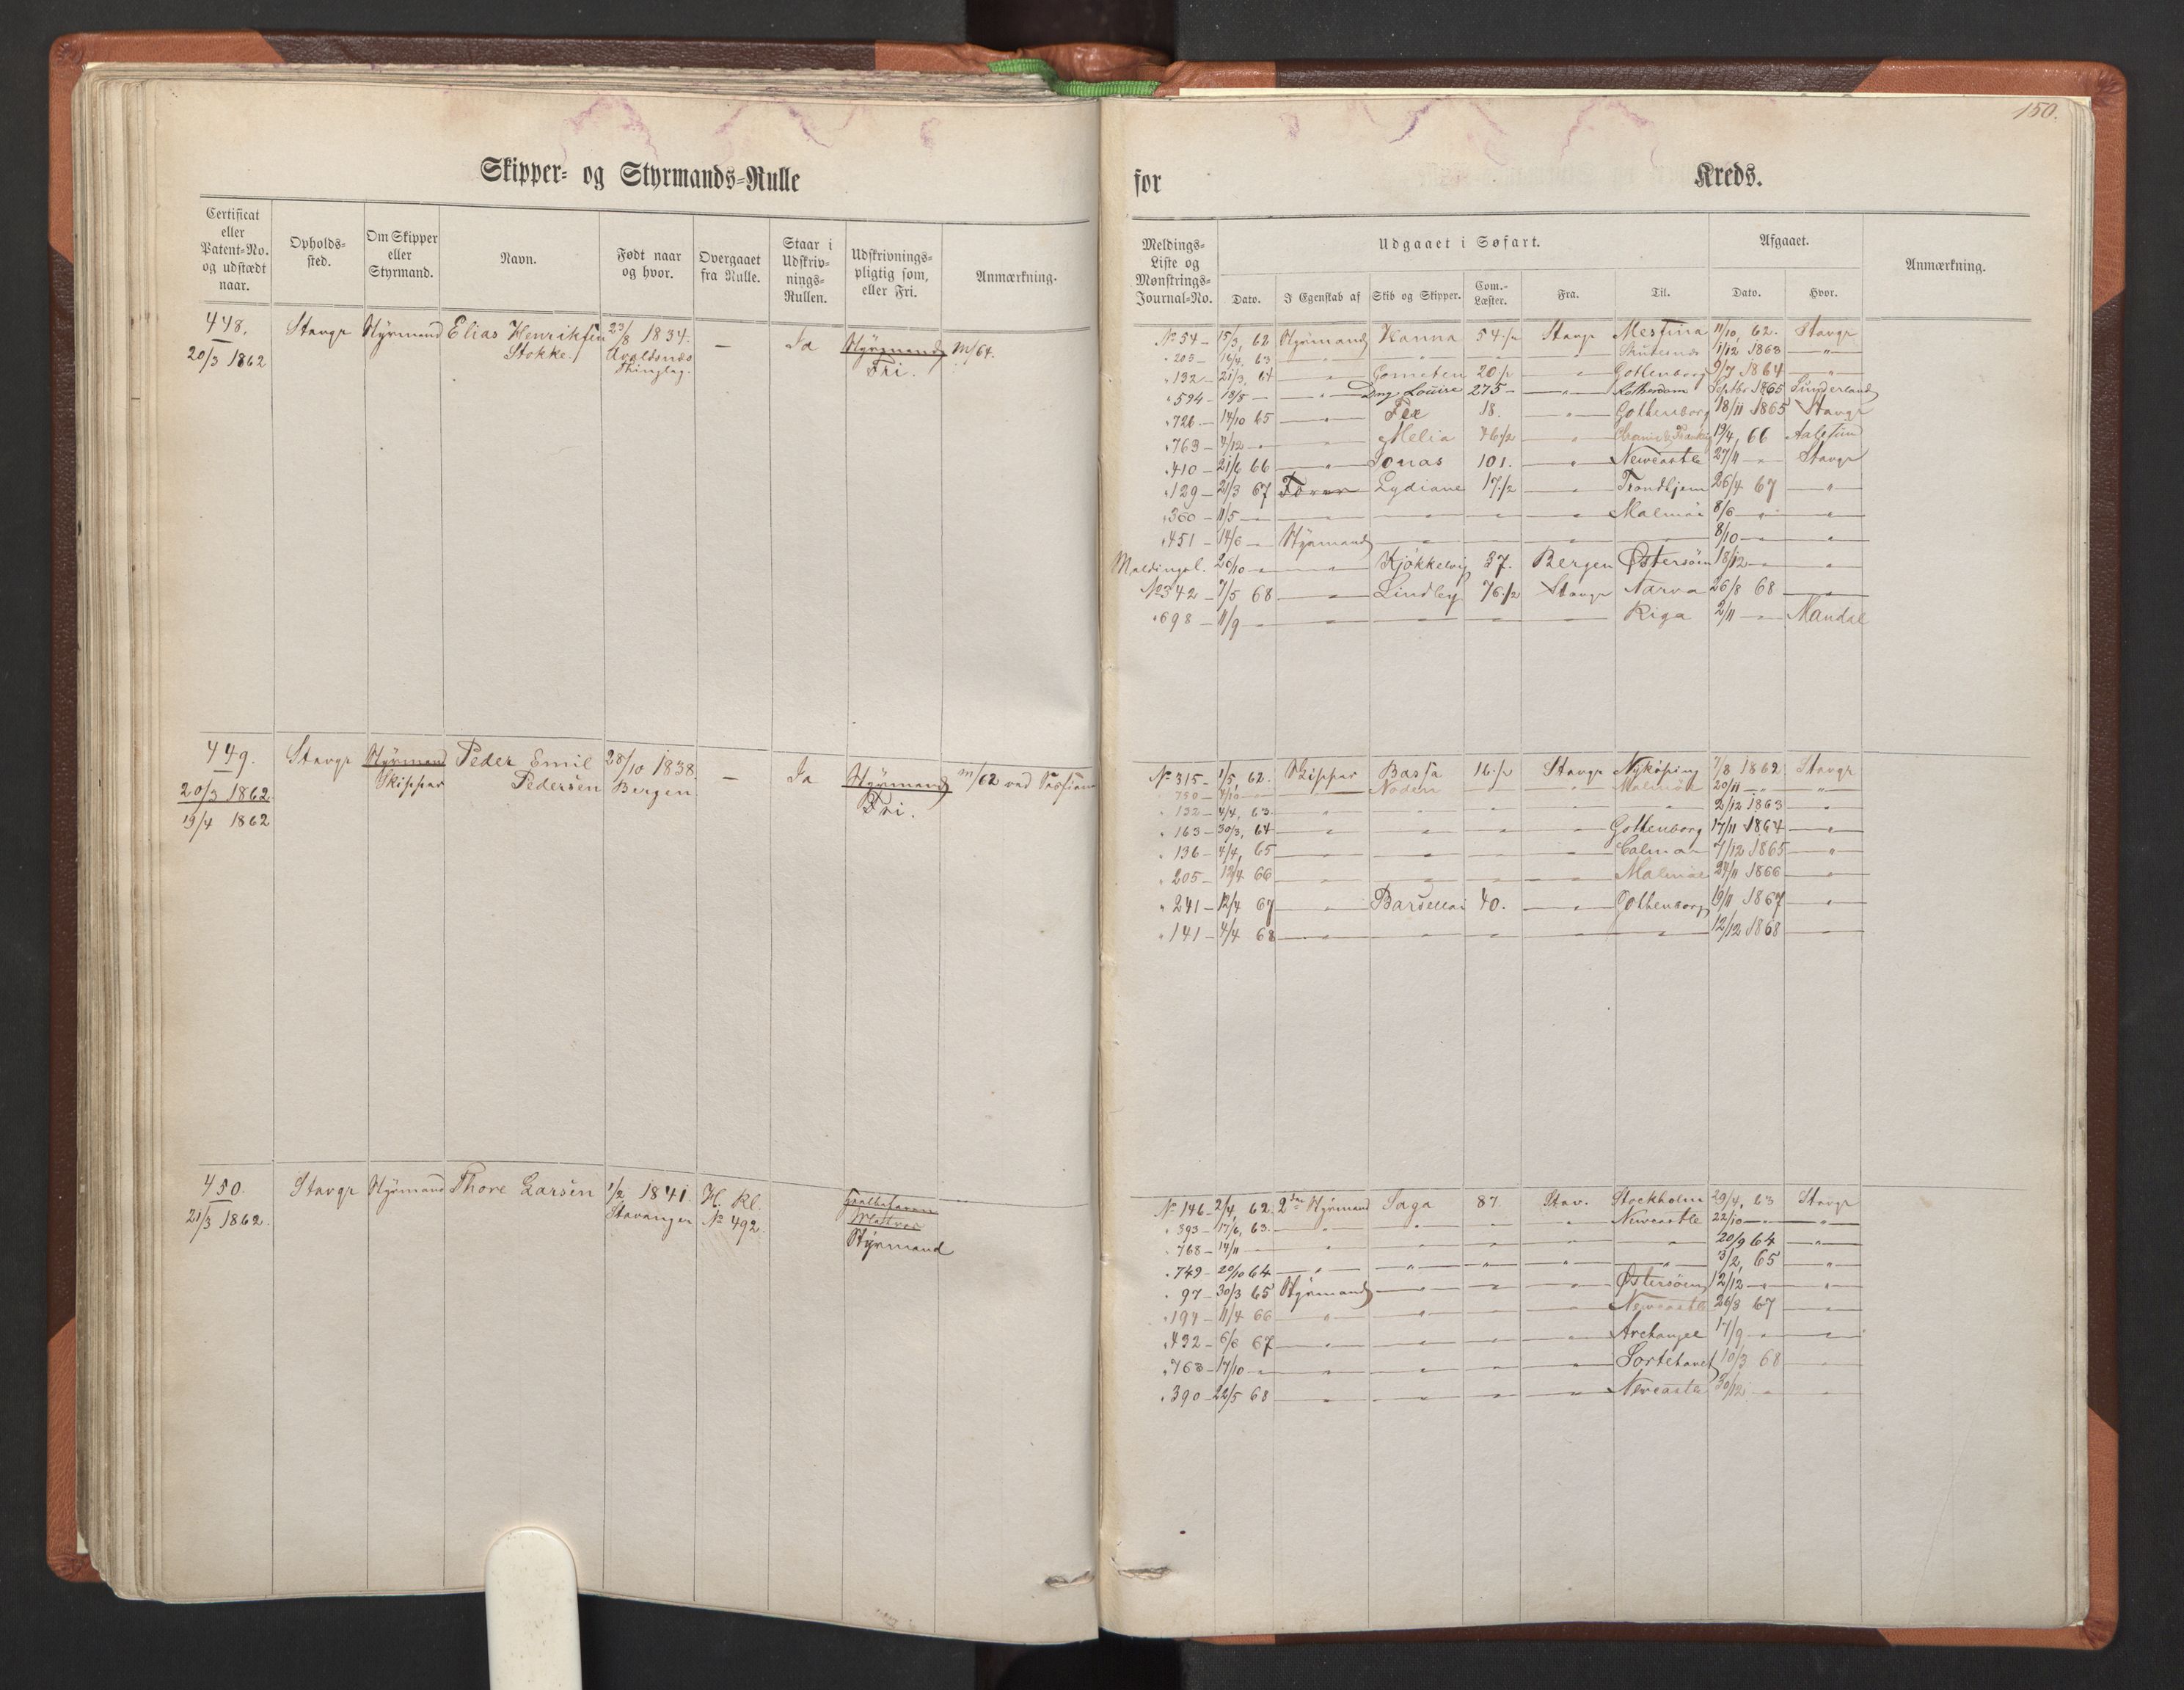 150.
Skipper- og Styrmands-Rulle
for Kreds.
Certificat eller Patent-No. og udstædt naar.
Opholds-sted.
Om Skipper eller Styrmand.
Navn.
Født naar og hvor.
Overgaaet fra Rulle.
Staar i Udskriv-nings-Rullen.
Udskrivnings-pligtig som, eller Fri.
Anmærkning.
Meldings-Liste og Mønstrings-Journal-No.
Udgaaet i Søfart.
Dato.
I Egenskab af
Skib og Skipper.
Com.-Læster.
Fra.
Til.
Afgaaet.
Dato.
Hvor.
Anmærkning.
448. Stavgr Styrmand Elias Henriksen 23/8 1834. — Ja Styrmand m/64.
20/3 1862 Stokke. Avaldsnæs Fri.
Thinglag.
No 54 — 15/3, 62 Styrmand Hanna 54 1/2 Stavgr Messina 11/10, 62. Stavgr
" 205 — 16/4. 63 " " " " 1/12 1863 "
" 132 — 21/3, 64 " 20 1/2 " Gothenborg 9/7 1864 "
" 594 — " Louise 275 " Septbr 1865 Sunderland
" 726 — 14/10 65 " 18. " Gothenborg 18/11 1865 Stavgr
" 763 — 4/12 " " Melia 46 1/2 " 19/4, 66 Aalesund
" 410 — 21/6 66 " Jonas 101. " Newcastle 27/11 " Stavgr
" 129 — 21/3 67 Lydiane 17 1/2 " Trondhjem 26/4 67 "
" 360 — 11/5 " " " " " Malmöe 8/6 " "
" 451 — 14/6 " Styrmand " " " " 8/10 " "
Meldingsl. 26/10 " " Kjökkelvig 37. Bergen Østersöen 18/12 " "
No 342 — 7/5 68 " Lindley 76 1/2 Stavgr Narva 26/8 68 "
" 698 — 11/9 " " " " " Riga 2/11 " Mandal
449. Stavgr Styrmand Peder Emil 28/10 1838. — Ja Styrmand m/62 ved
20/3 1862. Skipper Pedersen Bergen Fri.
19/4 1862
No 315 — 1/5, 62. Skipper Bassa 16 1/2 Stavgr Nyköping 7/8 1862 Stavgr
" 750 — " " Noden " " Malmöe 20/11 " "
" 132 — 4/4, 63. " " " " " 2/12 1863 "
" 163 — 30/3, 64 " " " " Gothenborg 17/11 1864 "
" 136 — 4/4, 65 " " " " Calmar 7/12 1865 "
" 205 — 12/4 66 " " " " Malmöe 24/11 1866 "
" 241 — 12/4 67 " 40. " Gothenborg 19/11 1867 "
" 141 — 4/4 68 " " " " " 12/12 1868 "
450. Stavgr Styrmand Thore Larsen 1/2 1841. H. kl.
21/3 1862. Stavanger No 492.
Matros
Styrmand
No 146 — 2/4, 62. 2den Styrmand Saga 87. Stav. Stockholm 29/4, 63 Stavgr
" 393 — 17/6, 63. " " " " Newcastle 22/10 " "
" 768 — 14/11 " " " " " " 20/9 64 "
" 749 — 20/10 64 " " " " " 3/2, 65 "
" 97 — 30/3 65 Styrmand " " " Østersöen 12/12 " "
" 197 — 11/4 66 " " " " Newcastle 26/3 67 "
" 432 — 6/6 67 " " " " Archangel 17/9 " "
" 763 — 17/10 " " " " " Sortehavet 10/3 68 "
" 390 — 22/5 68 " " " " Newcastle 30/12 " "